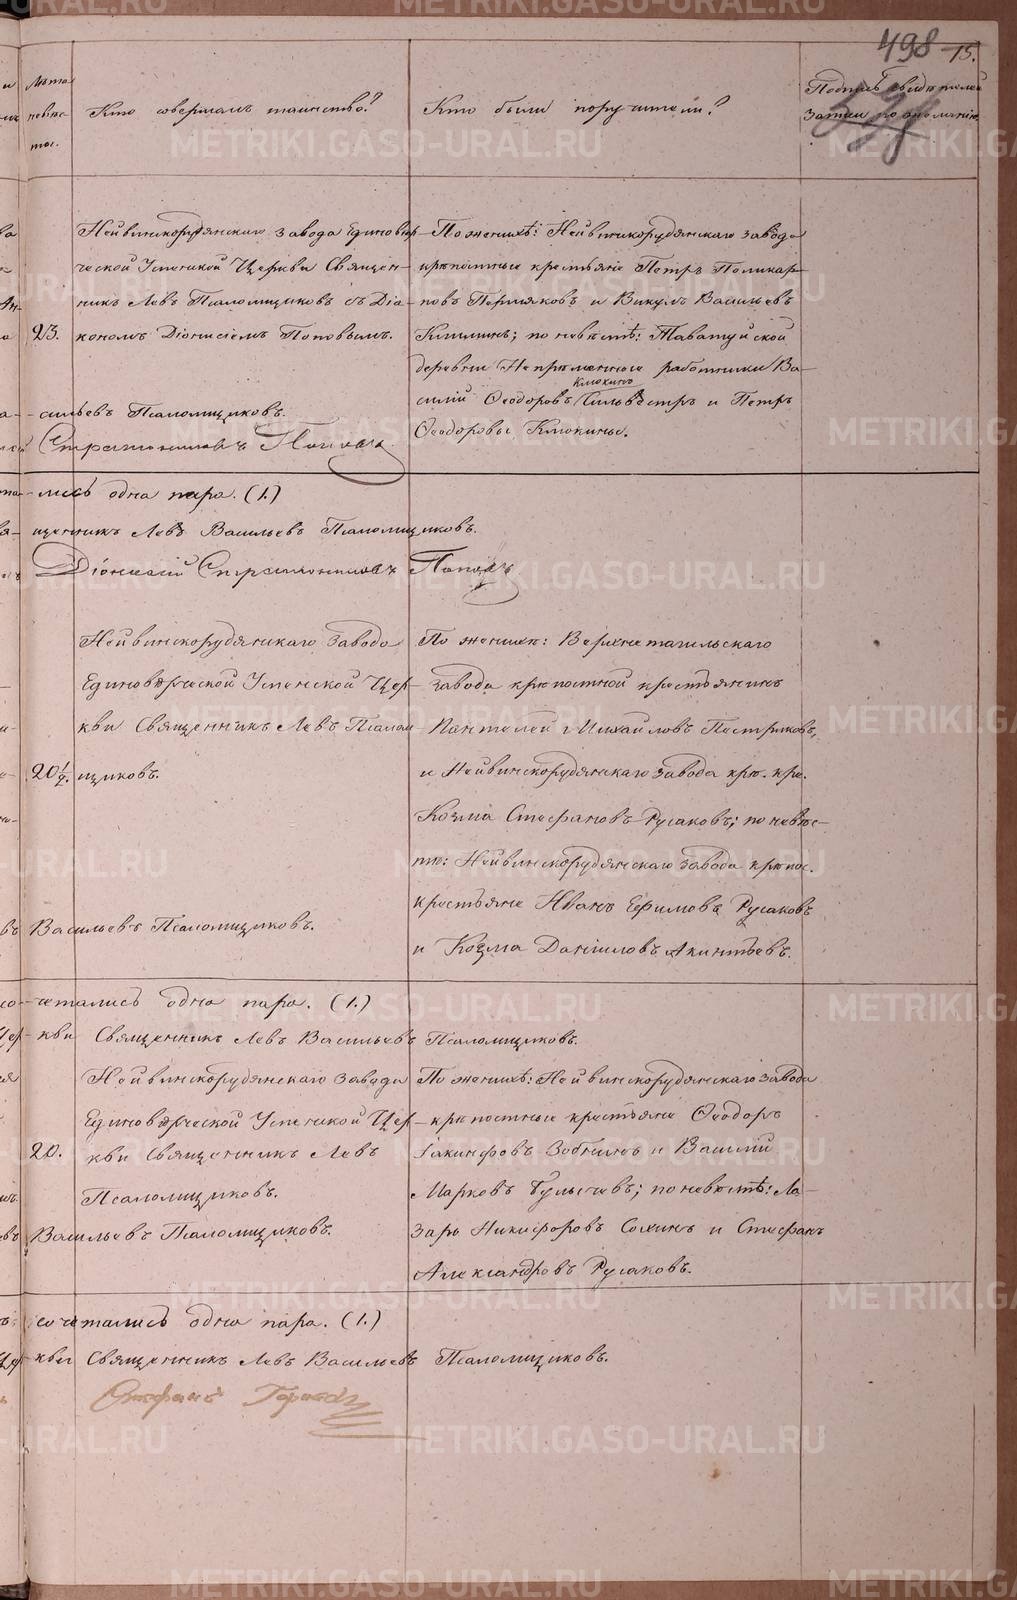 498 15.
Лѣта невѣсты.
Кто совершалъ таинство?
Кто были поручители?
Подпись свидѣтелей записи по желанію.
23.
Нейвинскорудянскаго завода Единовѣр-
ческой Успенской Церкви Священ-
никъ Левъ Псаломщиковъ съ Діа-
кономъ Діонисіемъ Поповымъ.
По женихѣ: Нейвинскорудянскаго завода
крѣпостные крестьяне Петръ Поликар-
повъ Пермяковъ и Викулъ Васильевъ
Кишинъ; по невѣстѣ: Таватуйской
деревни Непремѣнные работники Ва-
силій Ѳеодоровъ Клюкинъ Сильвестръ и Петръ
Ѳеодоровы Клюкины.
-сильевъ Псаломщиковъ.
Стратониковъ Поповъ
-лись одна пара. (1.)
-щенникъ Левъ Васильевъ Псаломщиковъ.
Діонисій Стратониковъ Поповъ
20½.
Нейвинскорудянскаго Завода
Единовѣрческой Успенской Цер-
кви Священникъ Левъ Псалом-
щиковъ.
По женихѣ: Верхнетагильскаго
завода крѣпостной крестьянинъ
Пантелей Михайловъ Пестриковъ,
и Нейвинскорудянскаго завода крѣ. кре.
Козма Стефановъ Русаковъ; по невѣс-
тѣ: Нейвинскорудянскаго завода крѣпос.
крестьяне Иванъ Ефимовъ Русаковъ
и Козма Даніиловъ Акинтьевъ.
Васильевъ Псаломщиковъ.
-четались одна пара. (1.)
-кви Священникъ Левъ Васильевъ Псаломщиковъ.
20.
Нейвинскорудянскаго Завода
Единовѣрческой Успенской Цер-
кви Священникъ Левъ
Псаломщиковъ.
По женихѣ: Нейвинскорудянскаго завода
крѣпостные крестьяне Ѳеодоръ
Іакинфовъ Зобнинъ и Василій
Марковъ Булычевъ; по невѣстѣ: Ла-
зарь Никифоровъ Сохинъ и Стефанъ
Александровъ Русаковъ.
Васильевъ Псаломщиковъ.
сочетались одна пара. (1.)
-кви Священникъ Левъ Васильевъ Псаломщиковъ.
METRIKI.GASO-URAL.RU